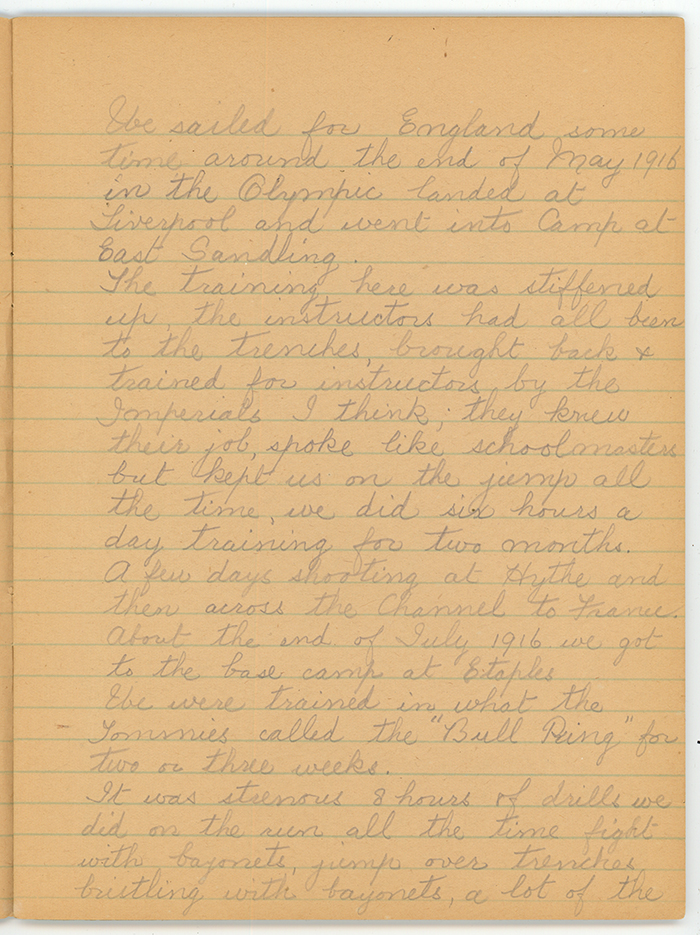 We sailed for England some
time around the end of May 1916
in the Olympic landed at
Liverpool and went into Camp at
East Sandling.
The training here was stiffened
up, the instructors had all been
to the trenches, brought back &
trained for instructors by the
Imperials I think; they knew
their job, spoke like schoolmasters
but kept us on the jump all
the time, we did six hours a
day training for two months.
A few days shooting at Hythe and
then across the Channel to France.
About the end of July 1916 we got
to the base camp at Etaples
We were trained in what the
Tommies called the "Bull Ring" for
two or three weeks.
It was strenous 8 hours of drills we
did on the run all the time fight
with bayonets, jump over trenches
bristling with bayonets, a lot of the